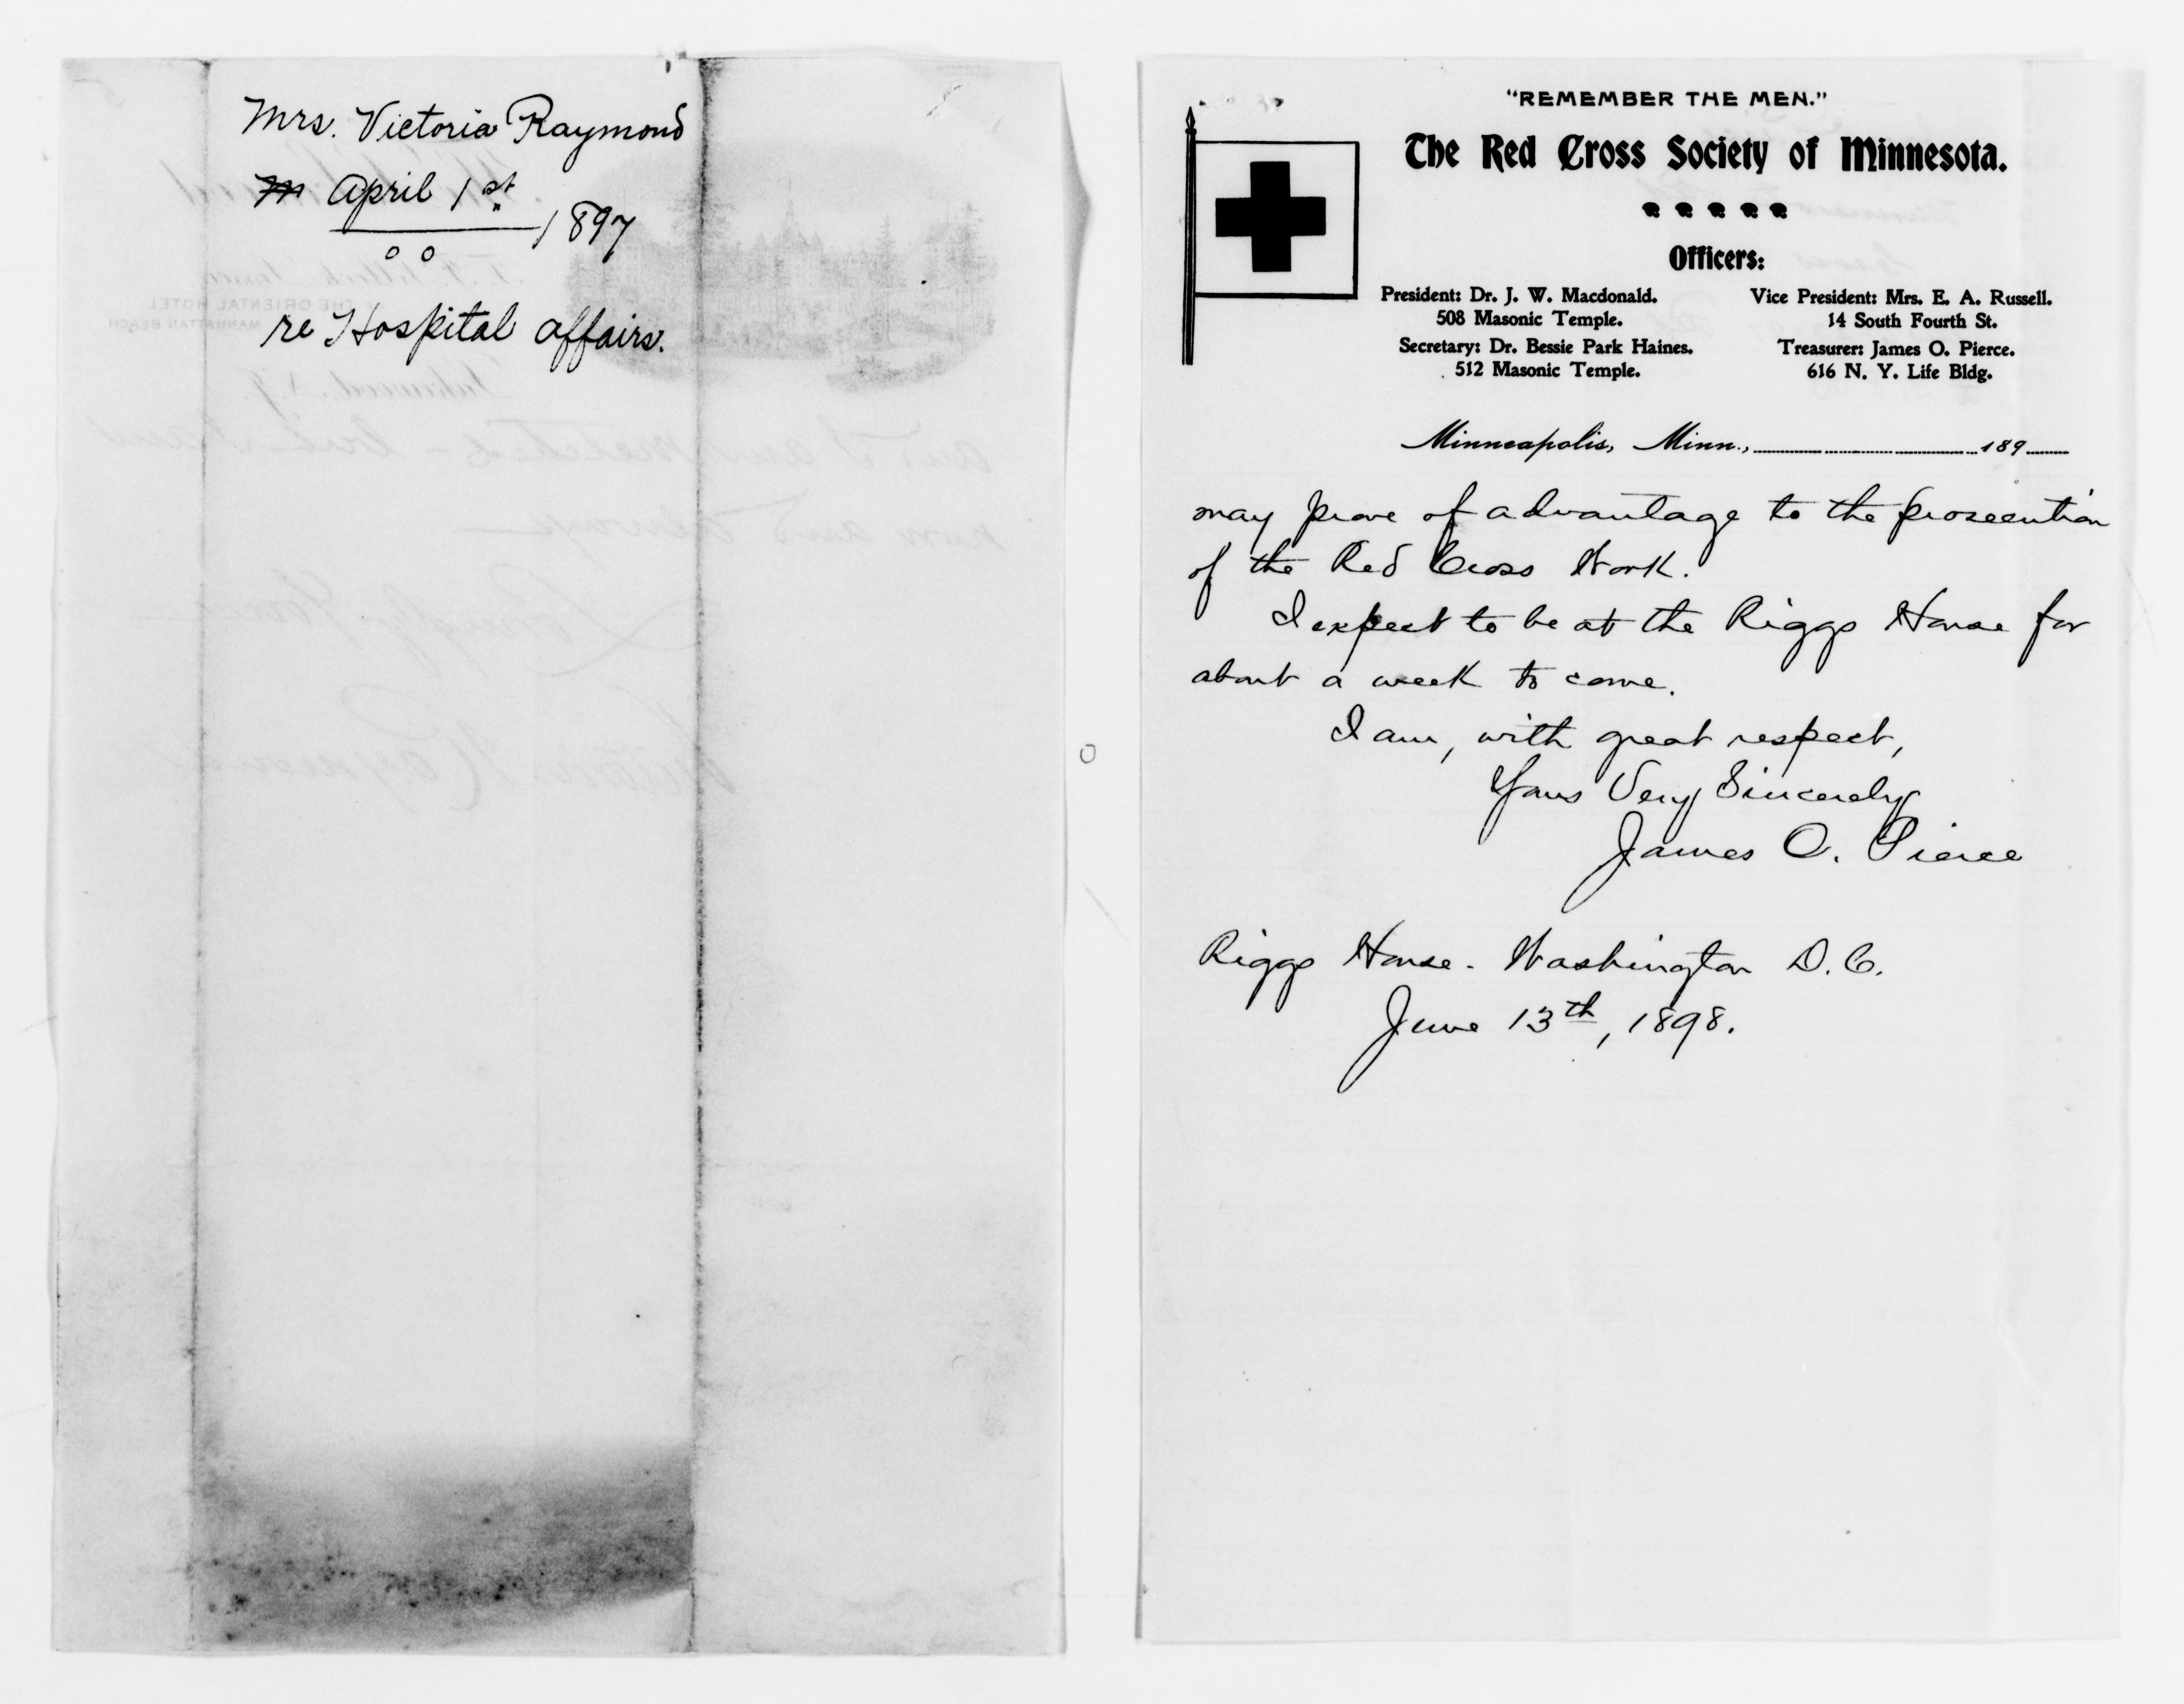 Mrs. Victoria Raymond
April 1st
1897
re Hospital affairs.
THE ORIENTAL HOTEL
MANHATTAN BEACH
"REMEMBER THE MEN."
The Red Cross Society of Minnesota.
Officers:
President: Dr. J. W. Macdonald.
508 Masonic Temple.
Secretary: Dr. Bessie Park Haines.
512 Masonic Temple.
Vice President: Mrs. E. A. Russell.
14 South Fourth St.
Treasurer: James O. Pierce.
616 N. Y. Life Bldg.
Minneapolis, Minn., 189
may prove of advantage to the prosecution
of the Red Cross Work.
I expect to be at the Riggs House for
about a week to come.
I am, with great respect,
Yours Very Sincerely
James O. Pierce
Riggs House. Washington D.C.
June 13th, 1898.